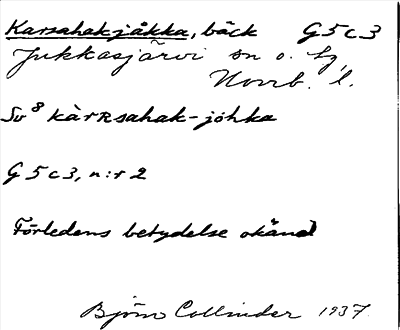 Karsahakjåkka, bäck G5c3
Jukkasjärvi sn o. tg,
Norrb. l.
Sv⁸ kàrRsahak-jóhka
G5c3, n:r 2
Förledens betydelse okänd
Björn Collinder 1937.